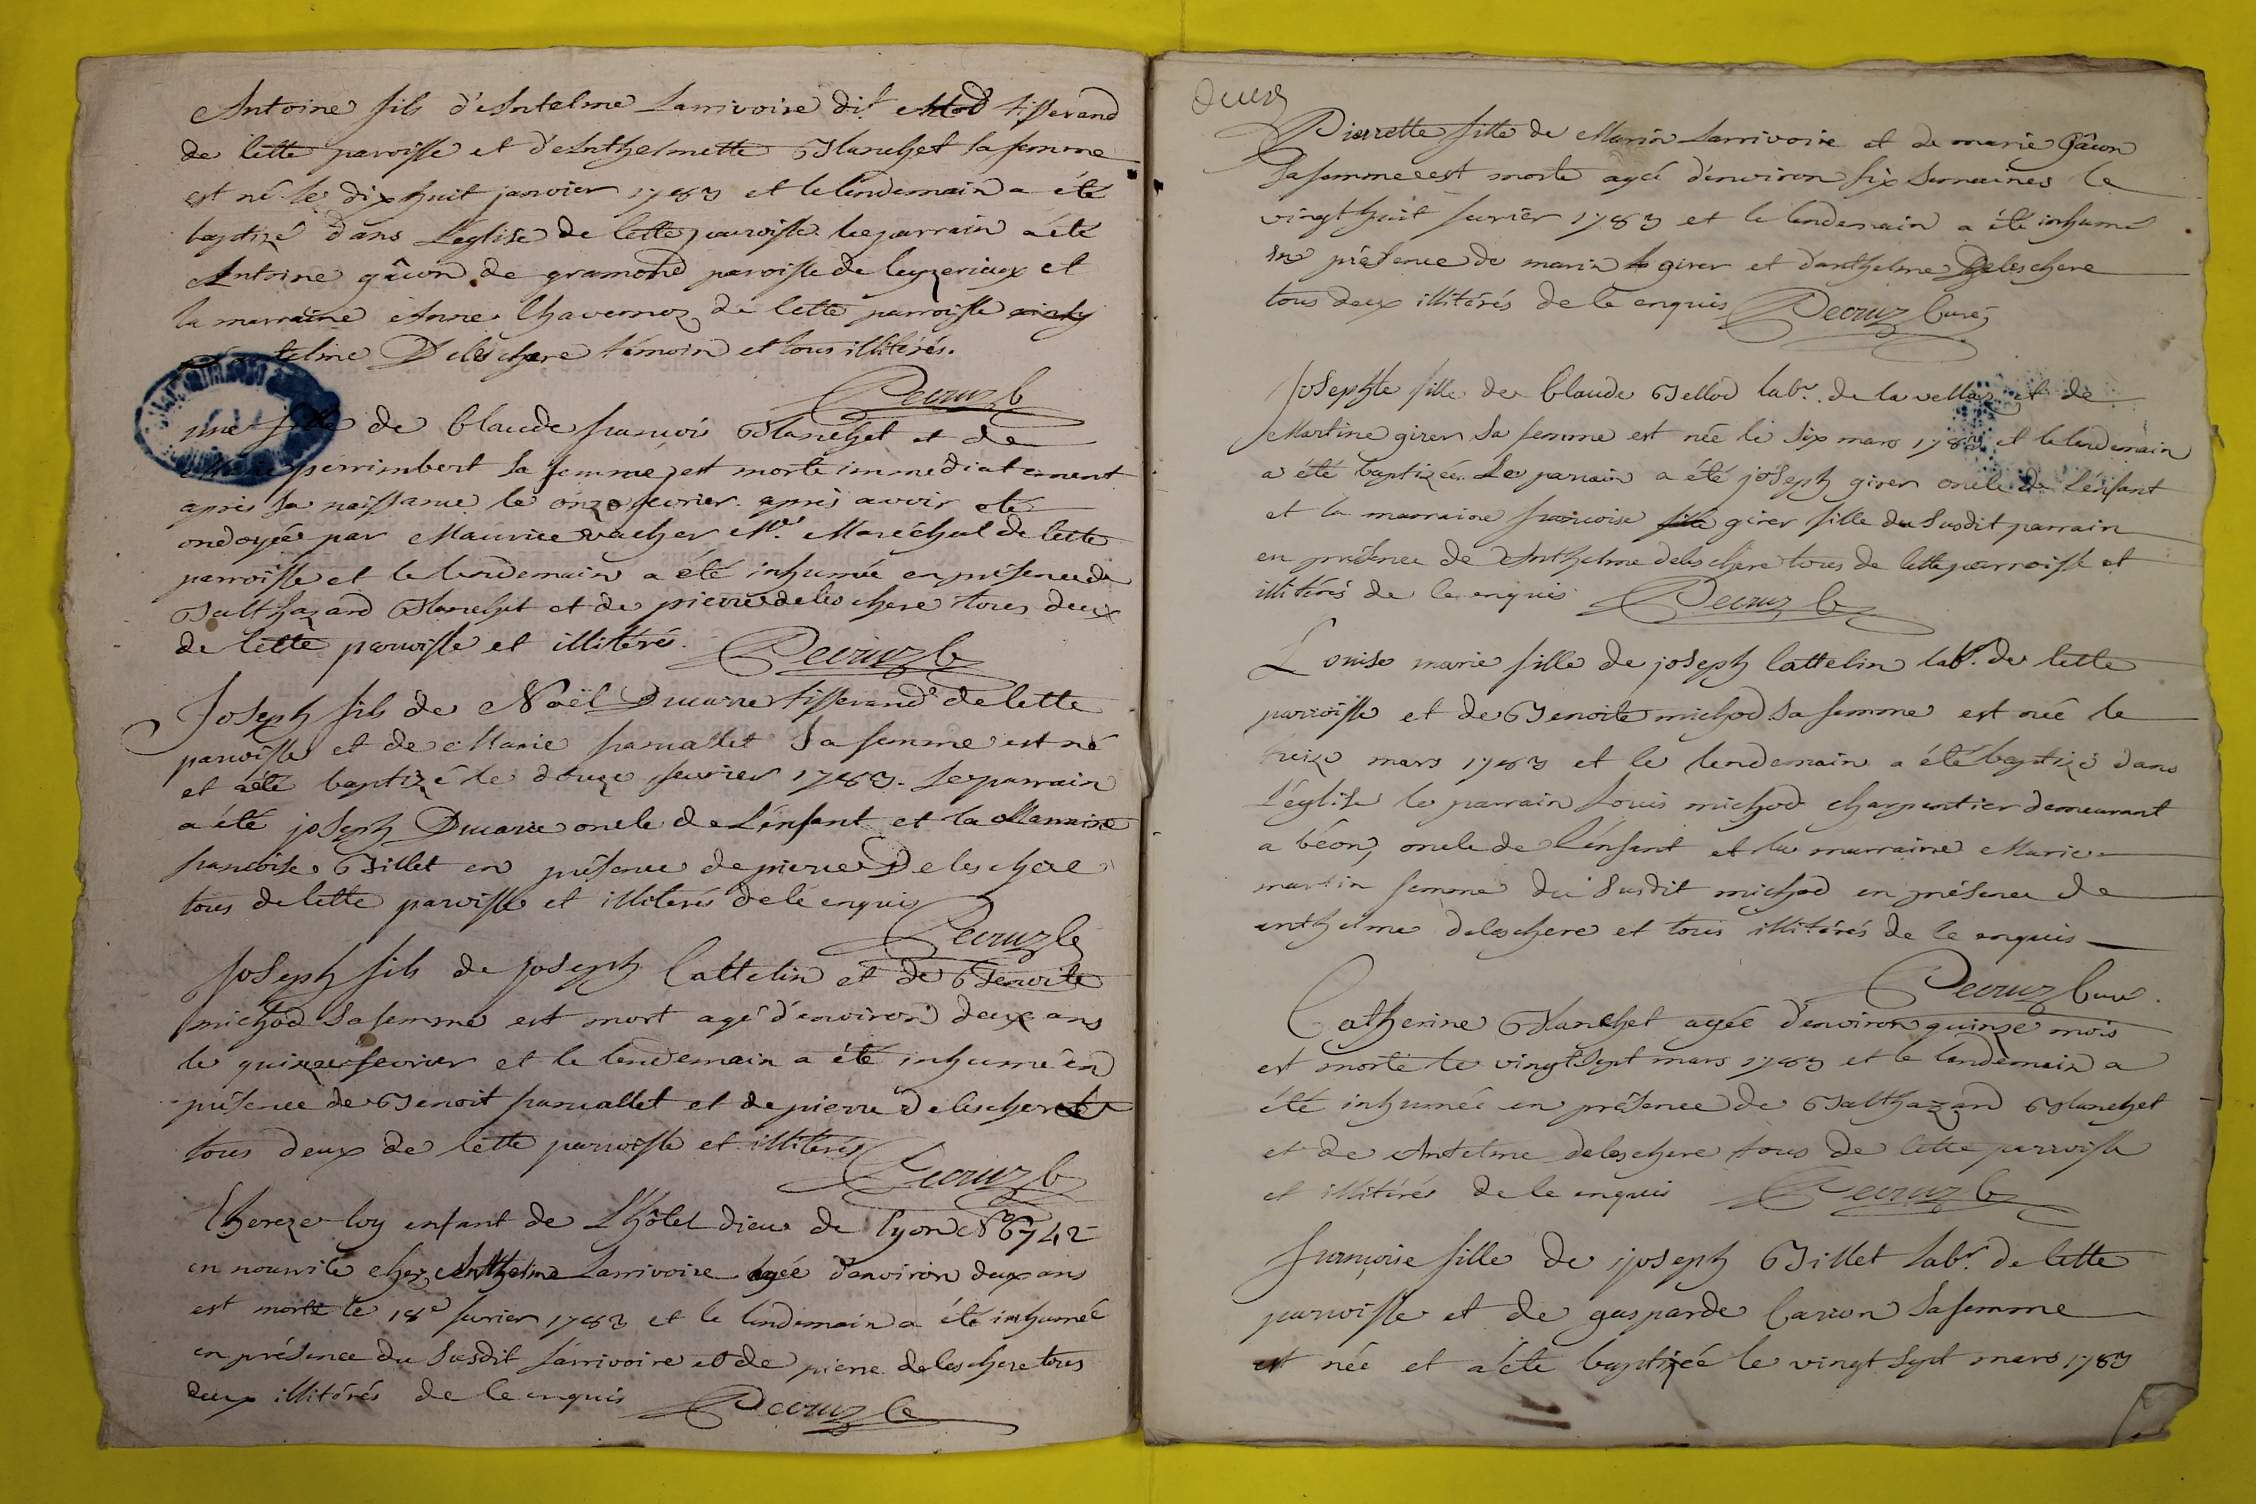 Antoine fils d'Antelme Larrivoire dit tisserand
de cette paroisse et d'Anthelmette Blanchet sa femme
est né le dix huit janvier 1783 et le lendemain a été
baptizé dans L'eglise de cette paroisse le parrain a été
Antoine gâcon de gramond paroisse de leyzerieux et
la marraine Anne Chavernoz de cette parroisse
telme Deleschere témoin et tous illitérés.
Decruz C
fille de Claude francois Blanchet et de
perrimbert sa femme, est morte immediatement
après sa naissance le onze fevrier après avoir eté
ondoyée par Maurice vacher Me. Maréchal de cette
parroisse et le lendemain a été inhumée en présence de
Balthazard Blanchet et de pierre deleschere tous deux
de cette paroisse et illitéré. Decruz C
Joseph fils de Noël Ducarre tisserand de cette
paroisse et de Marie francallet sa femme est né
et a été baptizé le douze fevrier 1783. Le parrain
a été joseph Ducarre oncle de L'enfant et la Marraine
francoise Billet en présence de pierre Deleschere
tous de cette paroisse et illiterés de ce enquis
Decruz C
Joseph fils de joseph Cattelin et de Benoite
michod sa femme est mort agé d'environ deux ans
le quinze fevrier et le lendemain a été inhumé en
présence de Benoit francallet et de pierre deleschere
tous deux de cette parroisse et illiterés
Decruz C
Thereze loy enfant de L'hôtel dieu de Lyon No 6742
en nourrice chez Anthelme Larrivoire agée d'environ deux ans
est morte le 18e fevrier 1783 et le lendemain a été inhumée
en présence du susdit Larrivoire et de pierre deleschere tous
deux illitérés de ce enquis Decruz C
deux
Pierrette fille de Marin Larrivoire et de marie Gâcon
sa femme est morte agée d'environ six semaines le
vingt huit fevrier 1783 et le lendemain a été inhumé
en présence de marin girer et d'anthelme Deleschere
tous deux illitérés de ce enquis Decruz Curé
Josephte fille de Claude Bellod labr. de la vellaz et de
Martine girer sa femme est née le six mars 1783 et le lendemain
a été baptizée. Le parrain a été joseph girer oncle de l'énfant
et la marraine francoise fille girer fille du susdit parrain
en présence de Anthelme deleschere tous de cette parroisse et
illitérés de ce enquis Decruz C
Louise marie fille de joseph Cattelin labr. de cette
parroisse et de Benoite michod sa femme est née le
treize mars 1783 et le lendemain a été baptizé dans
L'église le parrain Louis michod charpentier demeurant
a béon, oncle de L'énfant et la marraine Marie
martin femme du susdit michod en présence de
anthelme deleschere et tous illitérés de ce enquis
Decruz Curé.
Catherine Blanchet agée d'environ quinze mois
est morte le vingt sept mars 1783 et le lendemain a
été inhumée en présence de Balthazard Blanchet
et de Antelme deleschere tous de cette parroisse
et illitérés de ce enquis Decruz C
françoise fille de joseph Billet labr. de cette
parroisse et de gasparde Carron sa femme
est née et a été baptizée le vingt sept mars 1783